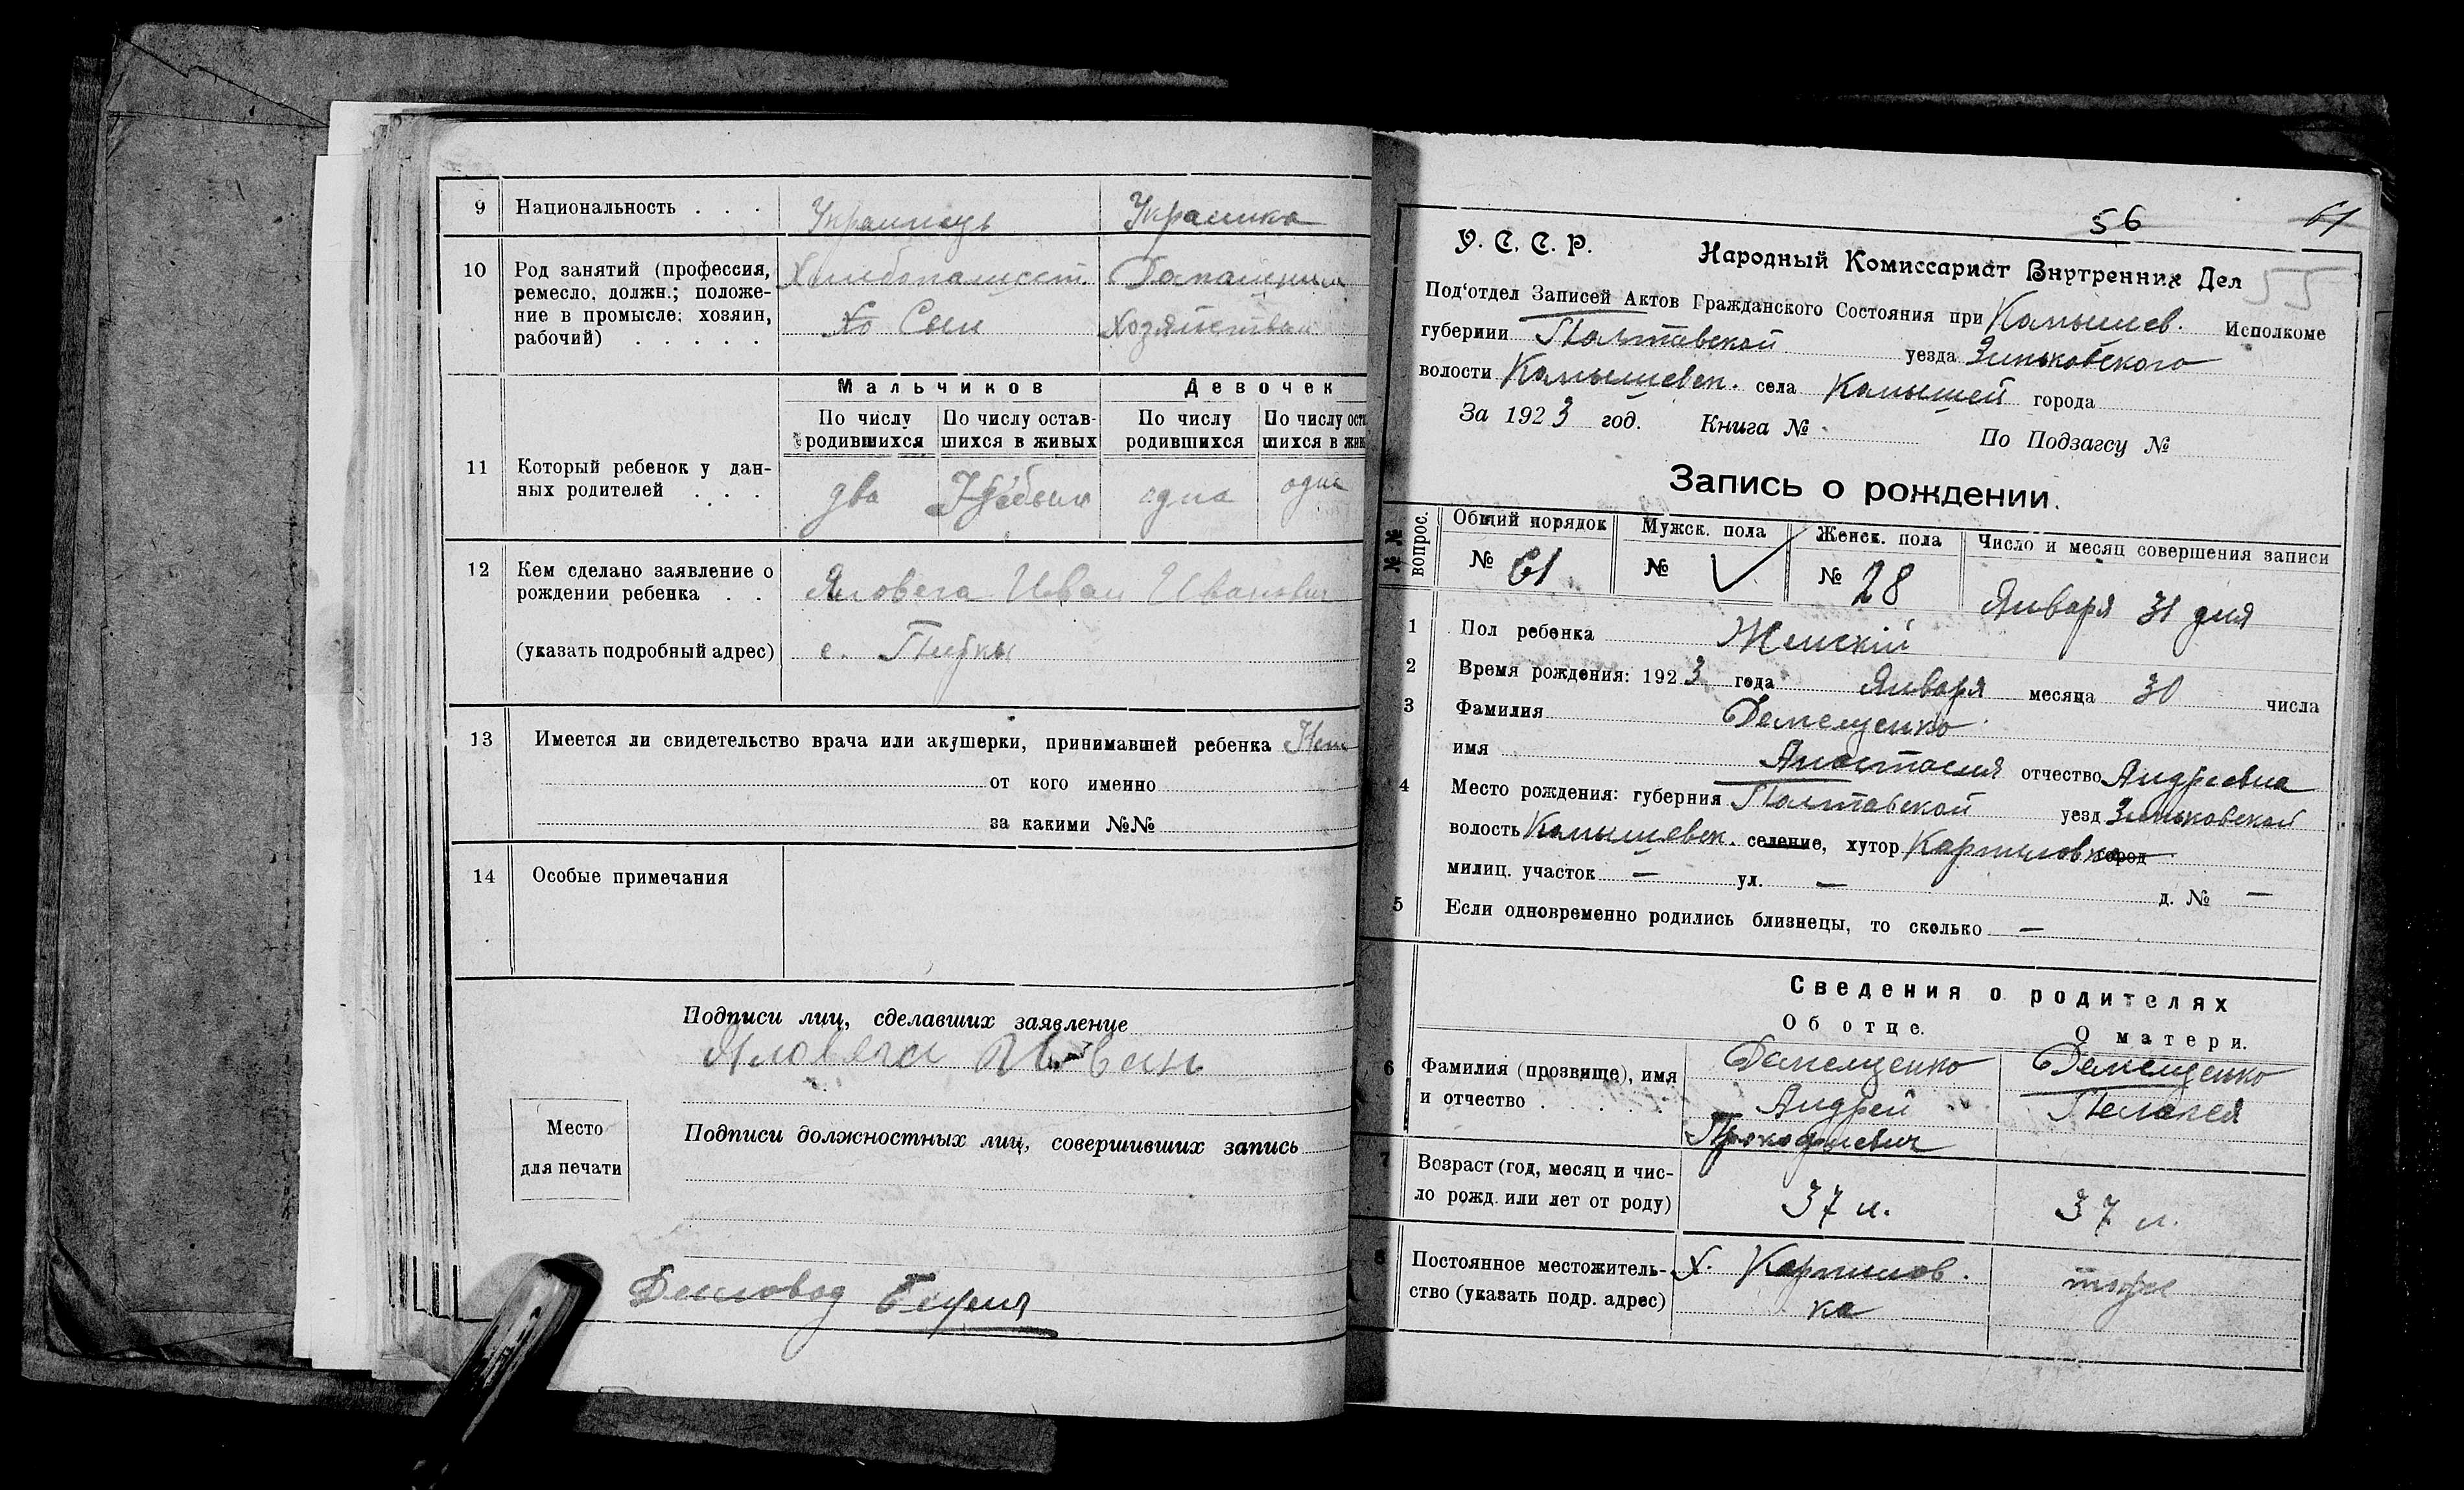 9 Национальность . . . Украинець Украинка
10 Род занятий (профессия,
ремесло, должн.; положе-
ние в промысле: хозяин,
рабочий) . . . . .
Хлебопашест. Домашним
Хо Сын Хозяйством
Мальчиков Девочек
По числу родившихся По числу остав-шихся в живых По числу родившихся
11 Который ребенок у дан-
ных родителей . . .
два одна одна
12 Кем сделано заявление о
рождении ребенка . . Яловега Иван Иванович
(указать подробный адрес) с. Пирки
13 Имеется ли свидетельство врача или акушерки, принимавшей ребенка Нет
от кого именно
за какими №№
14 Особые примечания
Подписи лиц, сделавших заявление
Яловега Иван
Место
для печати
Подписи должностных лиц, совершивших запись
Деловод
56 61
55
У. С. С. Р. Народный Комиссариат Внутренних Дел
Под‘отдел Записей Актов Гражданского Состояния при Камышев. Исполкоме
губернии Полтавской уезда Зиньковского
волости Камышевск. села Камышей города
За 1923 год. Книга № По Подзагсу №
Запись о рождении.
№№ вопрос.
Общий порядок Мужск. пола Женск. пола Число и месяц совершения записи
№ 61 № № 28 Января 31 дня
1 Пол ребенка Женскій
2 Время рождения: 1923 года Января месяца 30 числа
3 Фамилия Демещенко
имя Анастасия отчество Андреевна
4 Место рождения: губерния Полтавской уезд Зиньковской
волость Камышевск. селение, хутор Карпиловка город
милиц. участок — ул. — д. № —
5 Если одновременно родились близнецы, то сколько —
Сведения о родителях
Об отце. О матери.
6 Фамилия (прозвище), имя
и отчество . . . .
Демещенко Демещенко
Андрей Пелагея
Прокофиевич
7 Возраст (год, месяц и чис-
ло рожд. или лет от роду)
37 л. 37 л.
8 Постоянное местожитель-
ство (указать подр. адрес)
х. Карпилов. тоже
ка